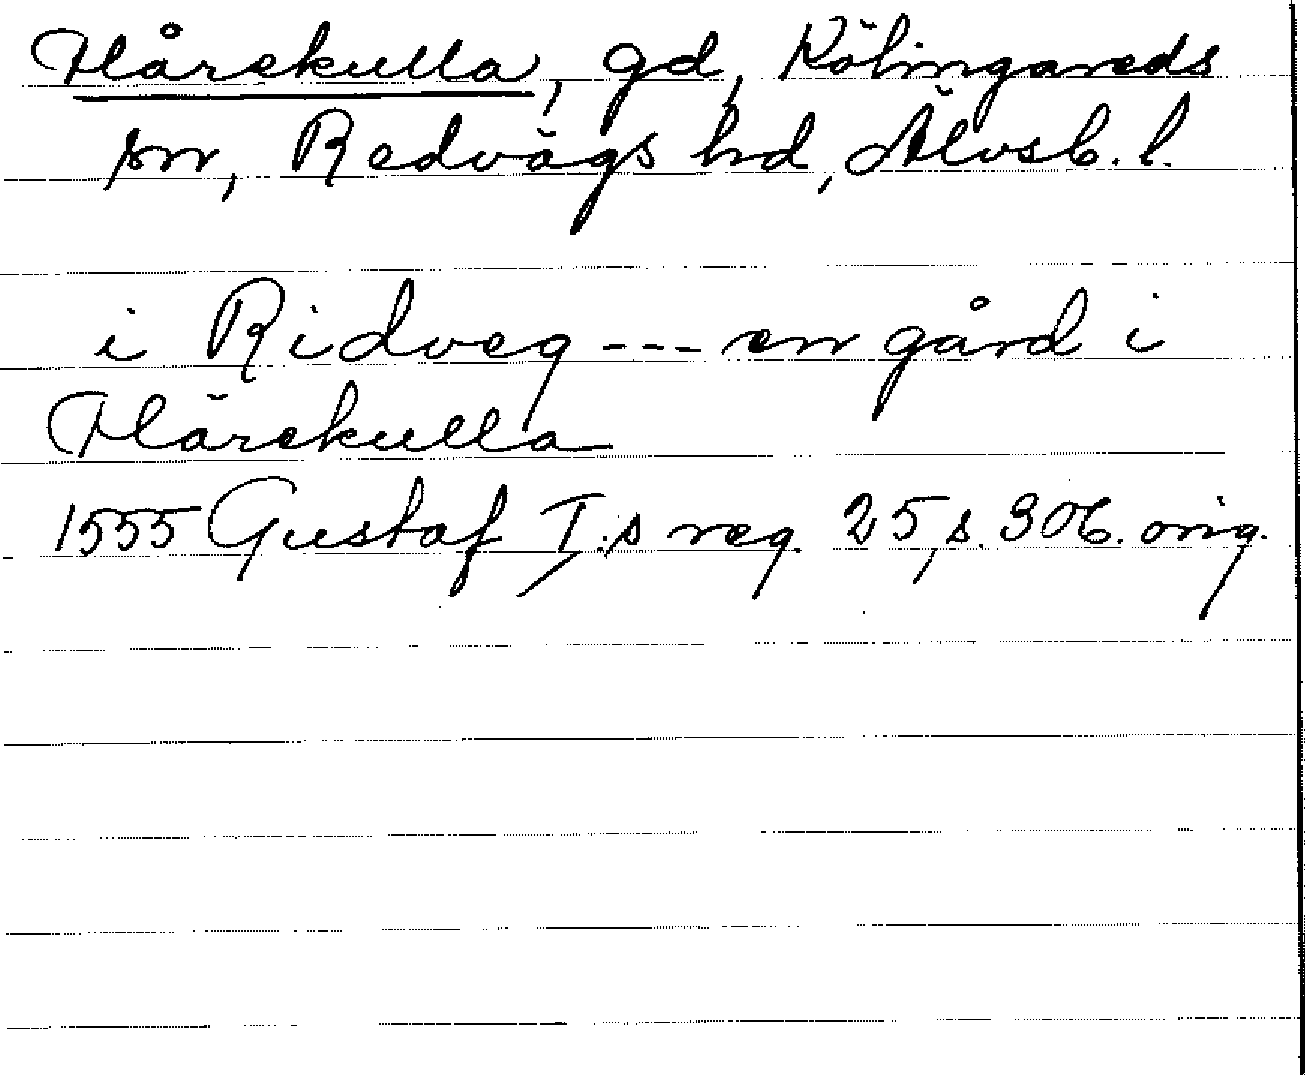 Hårekulla, gd, Kölingareds
sn, Redvägs hd, Älvsb. l.
i Ridveg --- en gård i
Härekulla
1555 Gustaf I:s reg. 25, s. 306. orig.